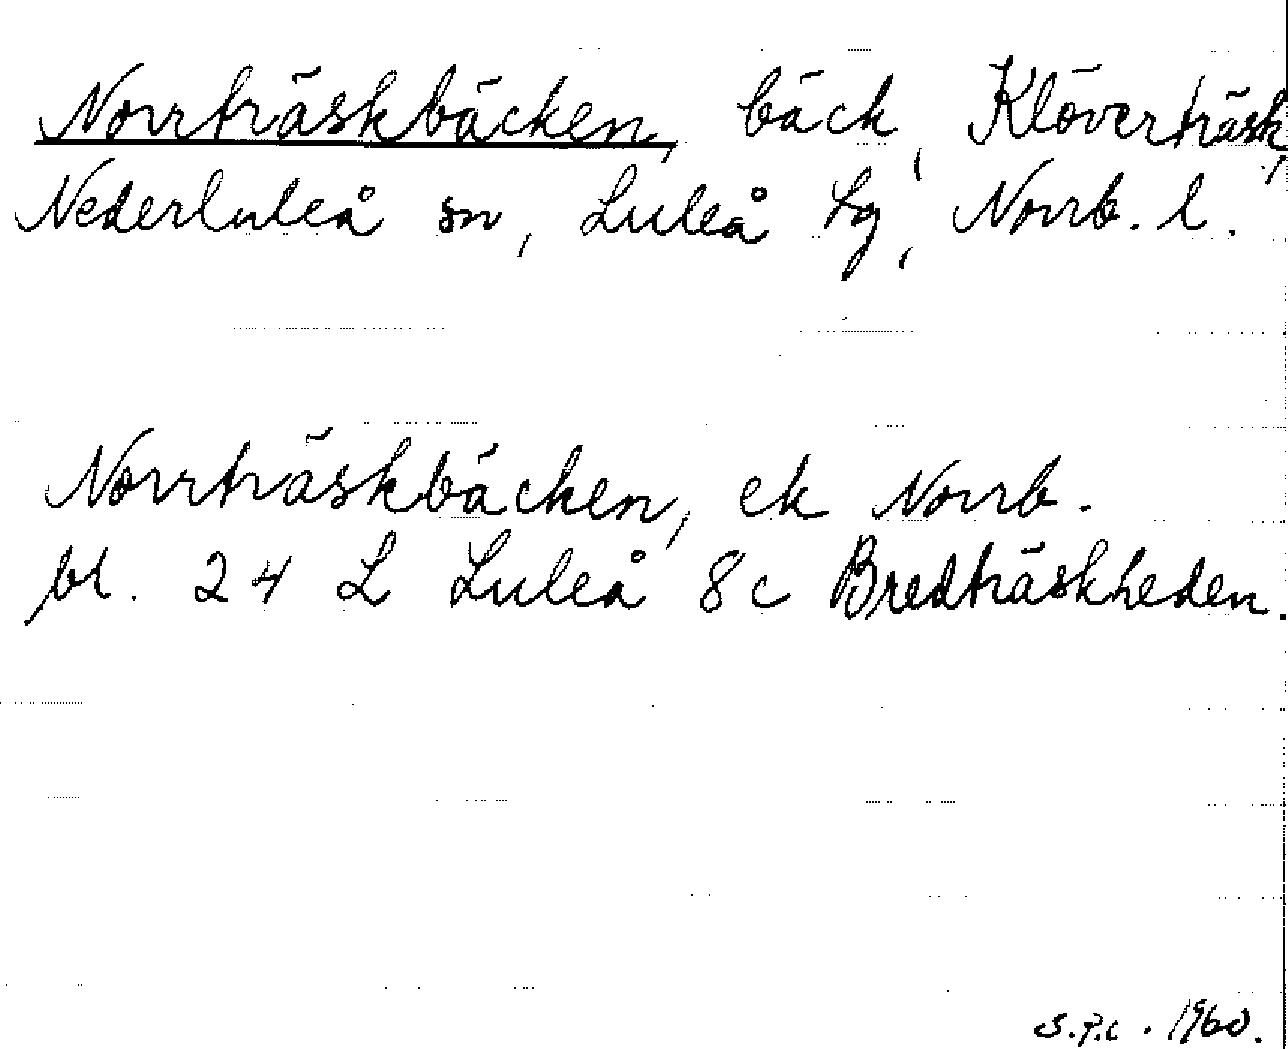 Norrträskbäcken, bäck, Klöverträsk,
Nederluleå sn, Luleå tg, Norrb. l.
Norrträskbäcken, ek Norrb.
bl. 24 L Luleå 8c Bredträskheden.
1960.